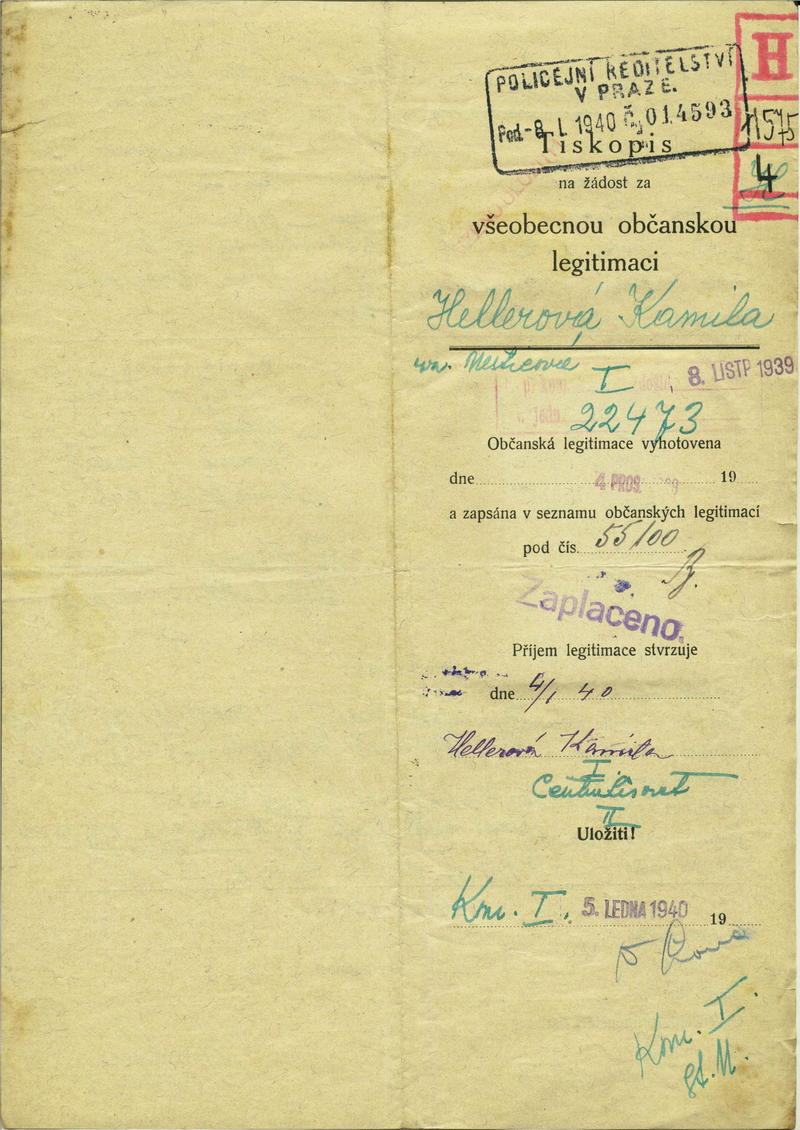 POLICEJNÍ ŘEDITELSTVÍ
V PRAZE.
Pod. -8. I. 1940 Čj. 014593
H
11575
4
Tiskopis
na žádost za
všeobecnou občanskou
legitimaci
Hellerová Kamila
I 8. LISTP 1939
22473
Občanská legitimace vyhotovena
dne 4 PROS. 19
a zapsána v seznamu občanských legitimací
pod čís. 55/100
Zaplaceno.
Příjem legitimace stvrzuje
dne 4/I 40
Hellerová Kamila
I
Centralisovat
II
Uložiti!
Kom. I. 5. LEDNA 1940 19
Kom. I.